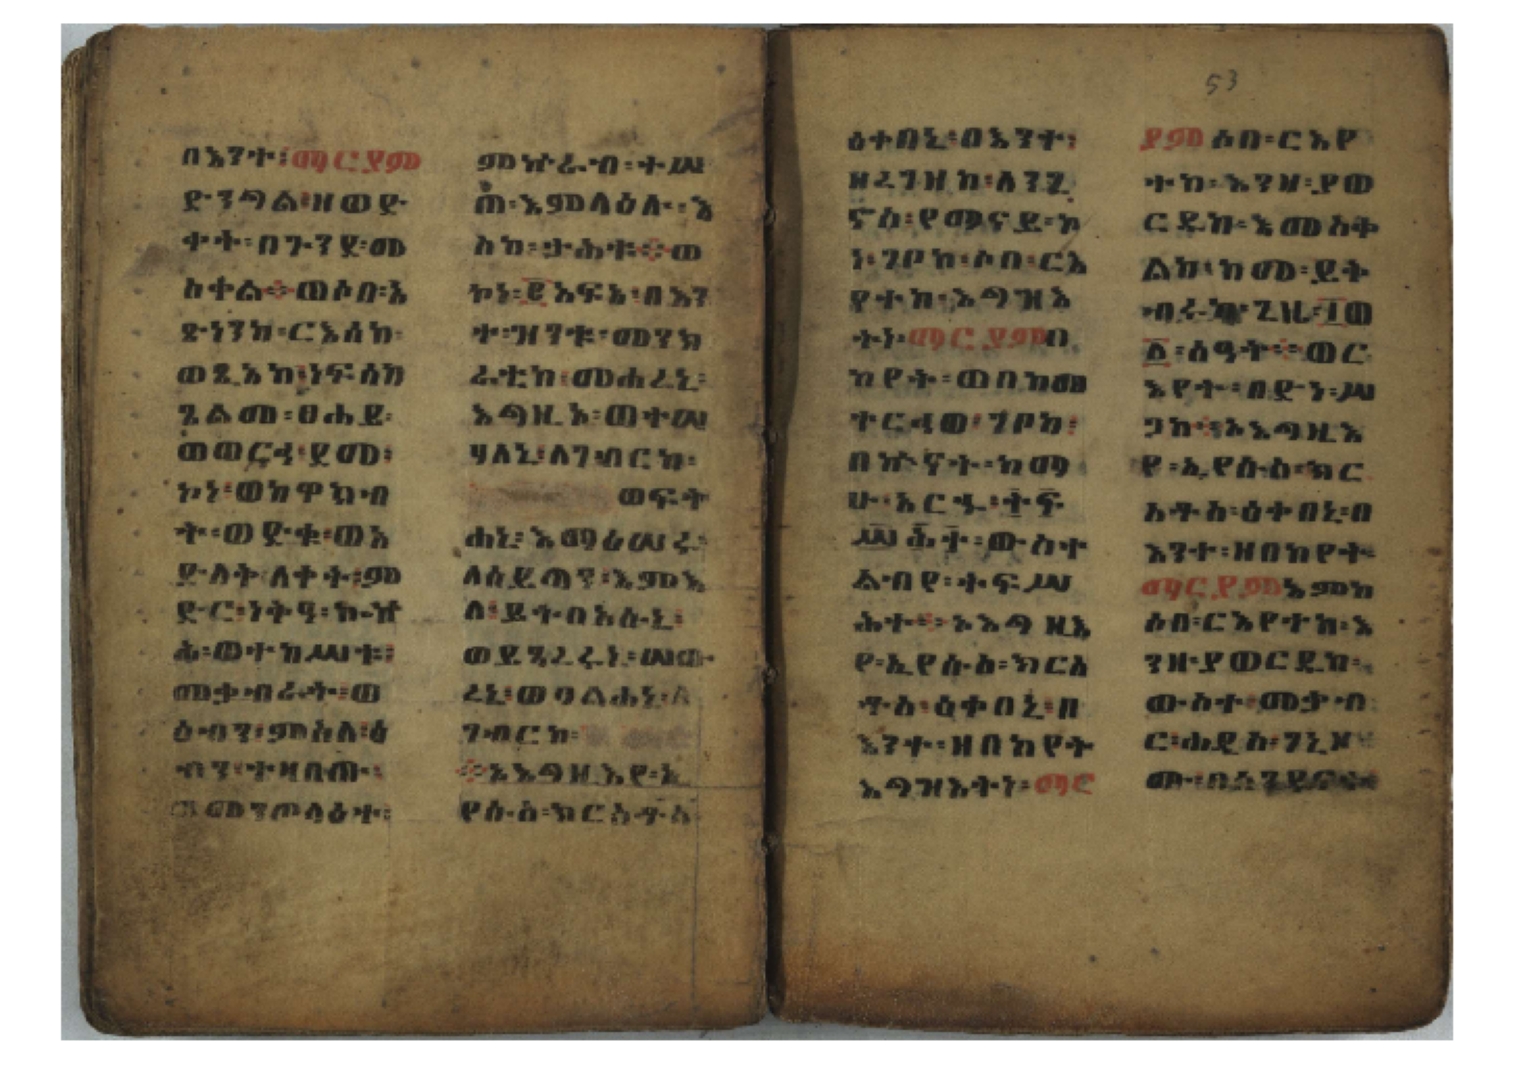 በእንተ፡ማርያም
ድንግል፡ዘወድ
ቀት፡በጉንደ፡መ
ስቀል፨ወሶበ፡አ
ድነንከ፡ርእሰከ፡
ወጼአከ፡ነፍሰከ
ጊልመ፡ፀሐይ፡
ወወርኃ፡ደመ፡
ኮነ፡ወከዋክብ
ት፡ወድቁ፡ወአ
ድለቅለቀት፡ም
ድር፡ነቅዓ፡ኰኵ
ሕ፡ወተከሥቱ፡
መቃብራት፡ወ
ዕብን፡ምስለ፡ዕ
ብን፡ተዛበጡ፡
መንጦላዕተ፡
ምኵራብ፡ተሠ
ጠ፡እምላዕሉ፡እ
ስከ፡ታሕቱ፨ወ
ኮነ፡፪አፍአ፡በእን
ተ፡ዝንቱ፡መንክ
ራቲከ፡መሐረኒ፡
እግዚኦ፡ወተሠ
ሃለኒ፡ለገብርከ፡
ወፍት
ሐኒ፡እማዕሠሩ፡
ለሰይጣን፡እምእ
ለ፡ይትበአሱኒ፡
ወይፄረሩኒ፡ሠው
ረኒ፡ወባልሐኒ፡ለ
ገብርከ፡
፨ኦእግዚእየ፡ኢ
የሱስ፡ክርስቶስ
ዕቀበኒ፡በእንተ፡
ዘረገዝከ፡ለንጊ
ኖስ፡የማናይ፡ኮ
ነ፡ገቦከ፡ሶበ፡ርእ
የተከ፡እግዝእ
ትነ፡ማርያምበ
ከየት፡ወበከመ
ተርኅወ፡ገቦከ፡
በኵናት፡ከማ
ሁ፡አርኁ፡ትፍ
ሥሕት፡ውስተ
ልብየ፡ተፍሥ
ሕተ፨ኦእግዚእ
የ፡ኢየሱስ፡ክርስ
ቶስ፡ዕቀበኒ፡በ
እንተ፡ዘበከየት
እግዝእትነ፡ማር
53
ያምሶበ፡ርእየ
ተከ፡እንዘ፡ያወ
ርዱከ፡እመስቀ
ልከ፡ከመ፡ይት
ብሩክ፡ጊዜ፡፲ወ
፩፡ሰዓት፨ወር
እየት፡በድነ፡ሥ
ጋከ፨ኦእግዚእ
የ፡ኢየሱስ፡ክር
ስቶስ፡ዕቀበኒ፡በ
እንተ፡ዘበከየት፡
ማርያምእምከ
ሶበ፡ርእየተከ፡እ
ንዘ፡ያወርዱከ፡
ውስተ፡መቃብ
ር፡ሐዲስ፡ገኒዞ